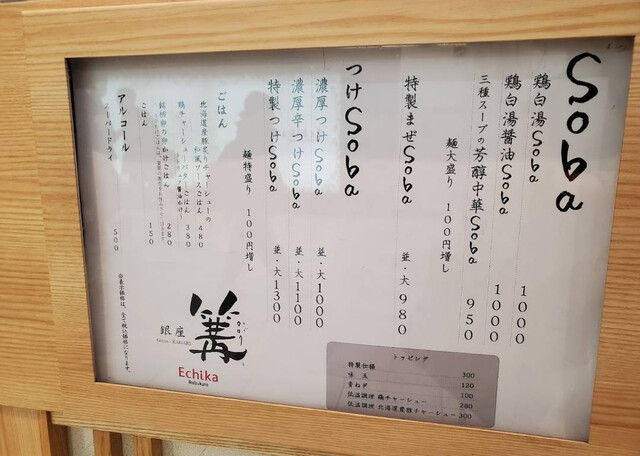 Soba
鶏白湯Soba 1000
鶏白湯醤油Soba 1000
三種スープの芳醇中華Soba 950
麺大盛り 100円増し
特製まぜSoba 並・大 980
つけSoba
濃厚つけSoba 並・大 1000
濃厚辛つけSoba 並・大 1100
特製つけSoba 並・大 1300
麺特盛り 100円増し
ごはん
北海道産豚炙りチャーシューの
和風ソースごはん 480
鶏チャーシューバターごはん 380
卵かけごはん 280
ごはん 150
アルコール
スーパードライ 500
※表示価格は、全て税込価格になります。
篝
かがり
銀座
Ginza・KAGARI
Echika
Ikebukuro
トッピング
特製仕様 300
味玉 120
青ねぎ 100
低温調理 鶏チャーシュー 280
低温調理 北海道産豚チャーシュー 300